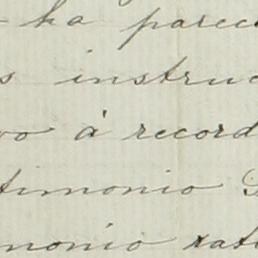 ha parec
s instruc
vo á record
timonio
monio rati